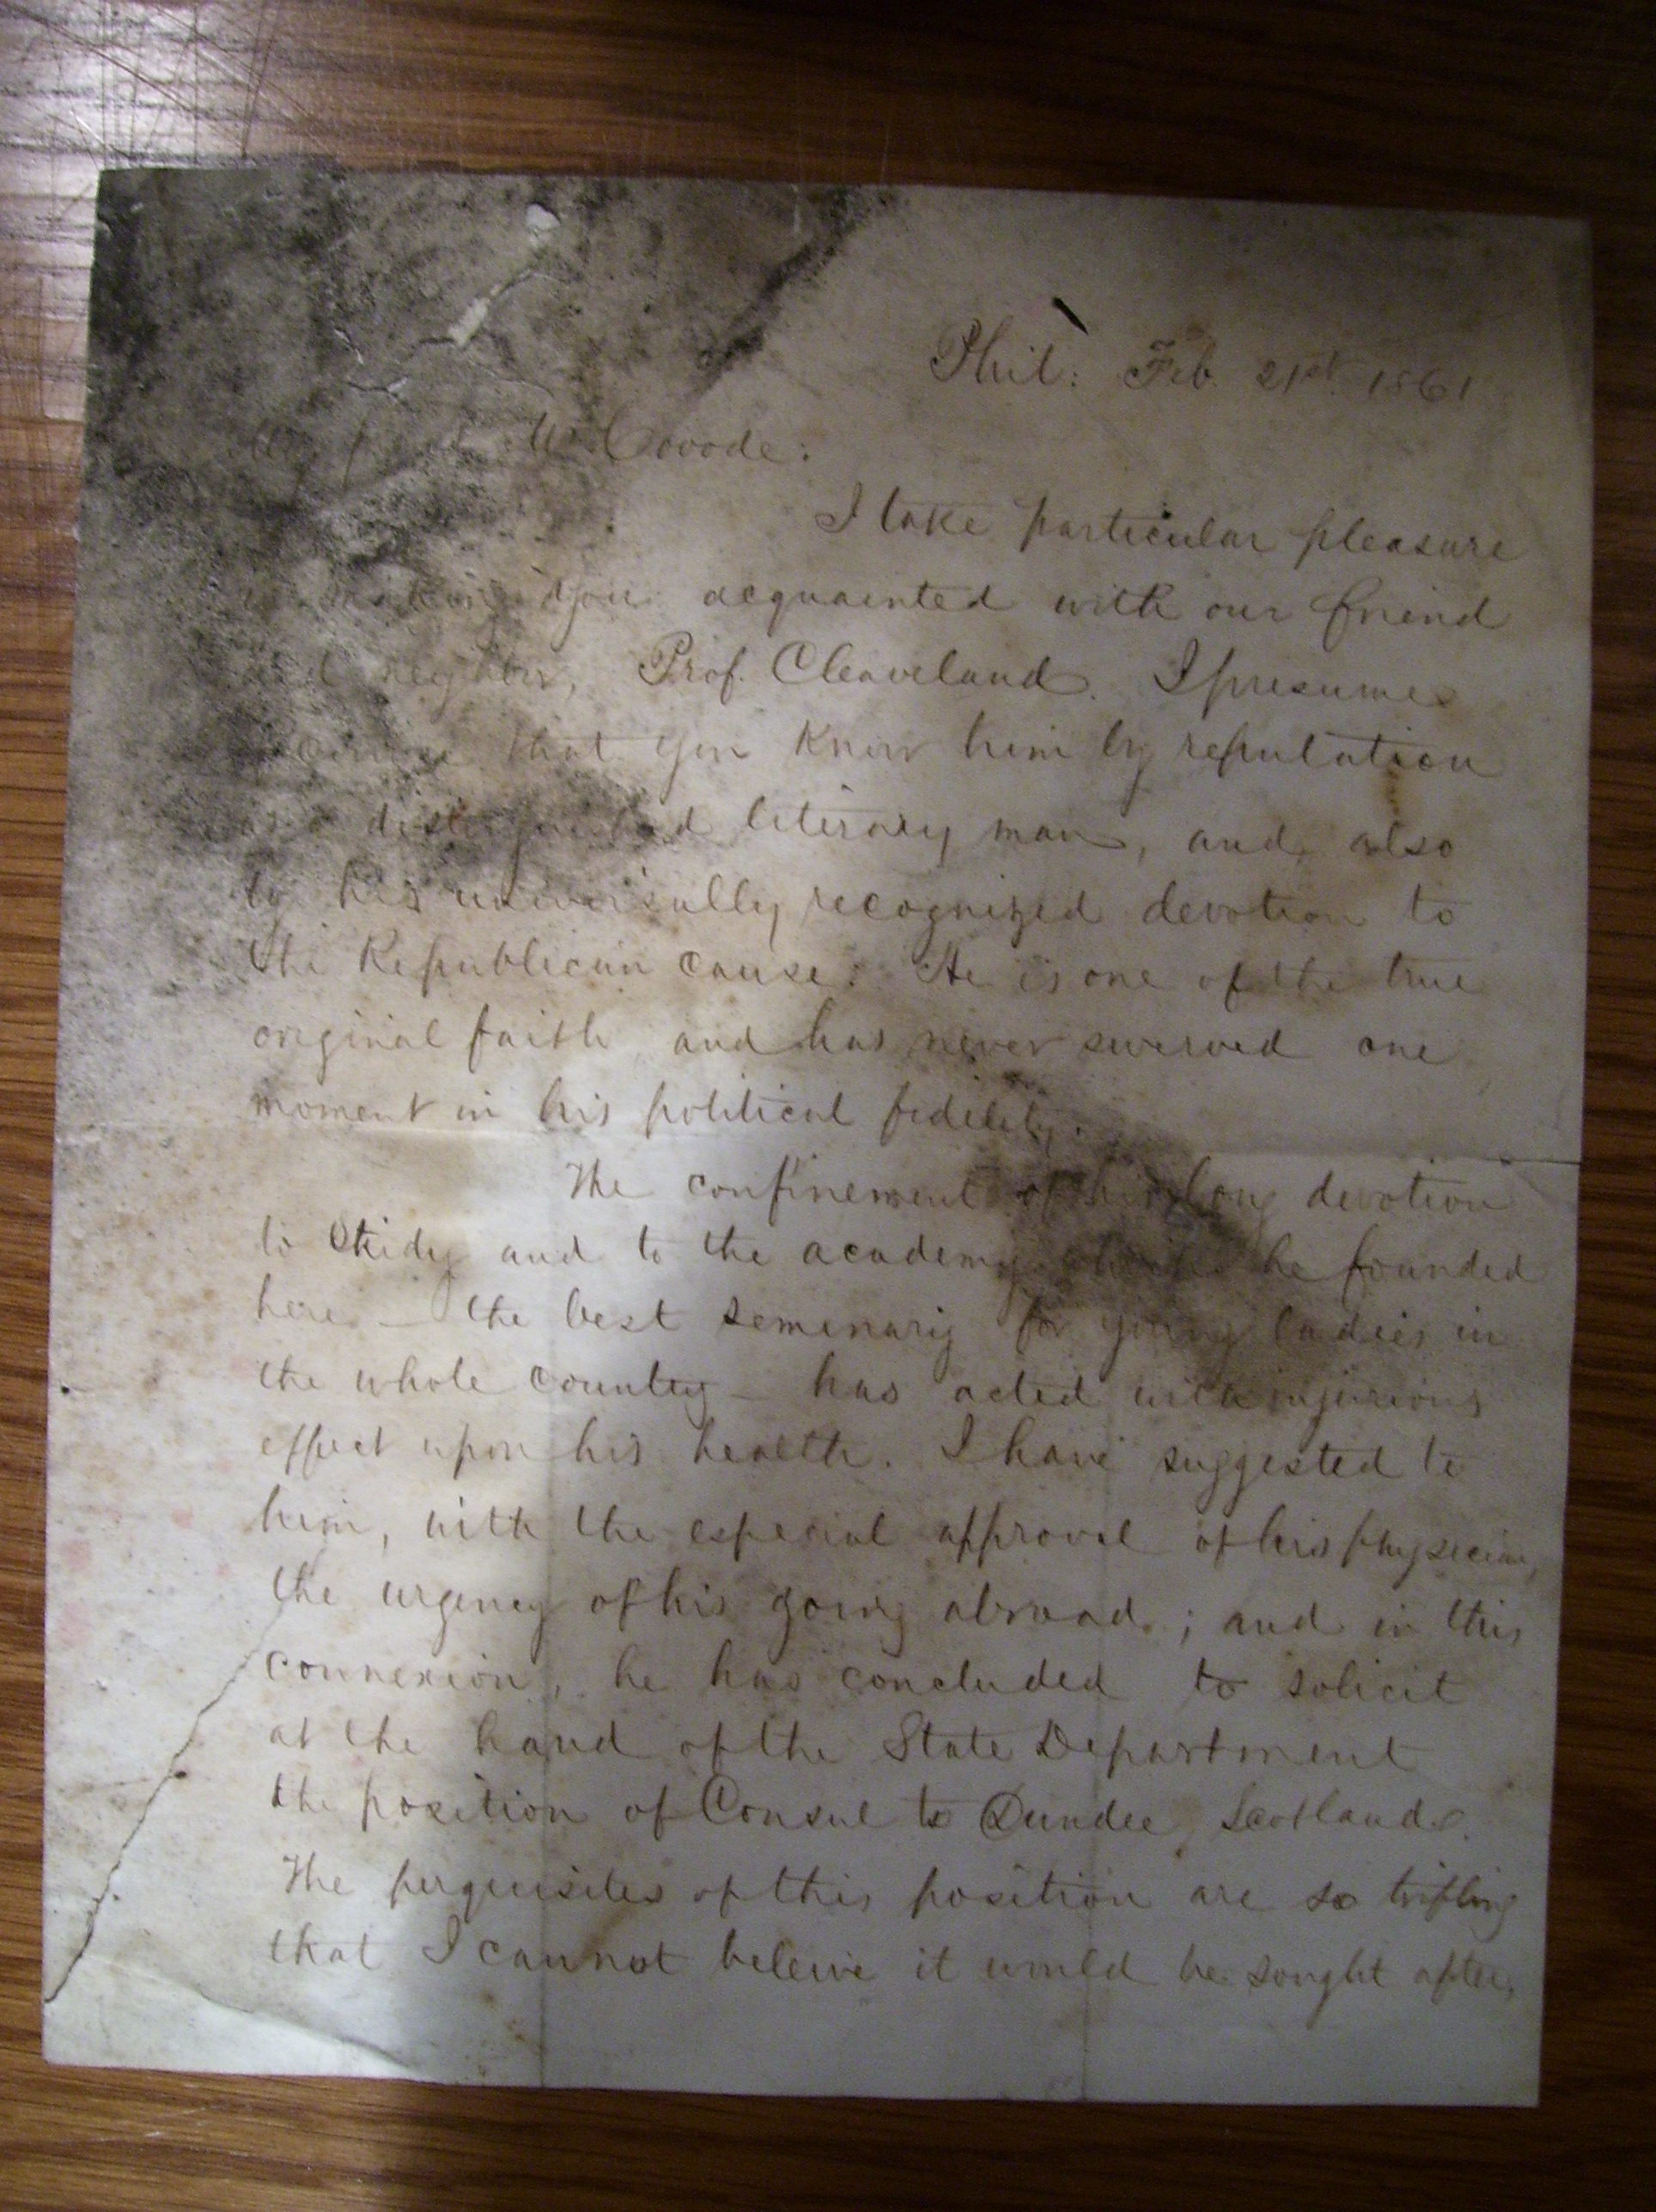 Phil: Feb. 21st 1861
My Mr. Covode:
I take particular pleasure
in making you acquainted with our friend
and neighbor, Prof. Cleaveland. I presume
that you know him by reputation
as a distinguished literary man, and also
by his universally recognized devotion to
the Republican cause. He is one of the true
original faith and has never swerved one
moment in his political fidelity.
The confinement of his long devotion
to study and to the academy which he founded
here – the best semenary for young ladies in
the whole country – has acted with injurious
effect upon his health. I have suggested to
him, with the especial approval of his physician,
the urgency of his going abroad; and in this
connexion, he has concluded to solicit
at the hand of the State Department
the position of Consul to Dundee, Scotland.
The perquisites of this position are so trifling
that I cannot beleive it would be sought after,